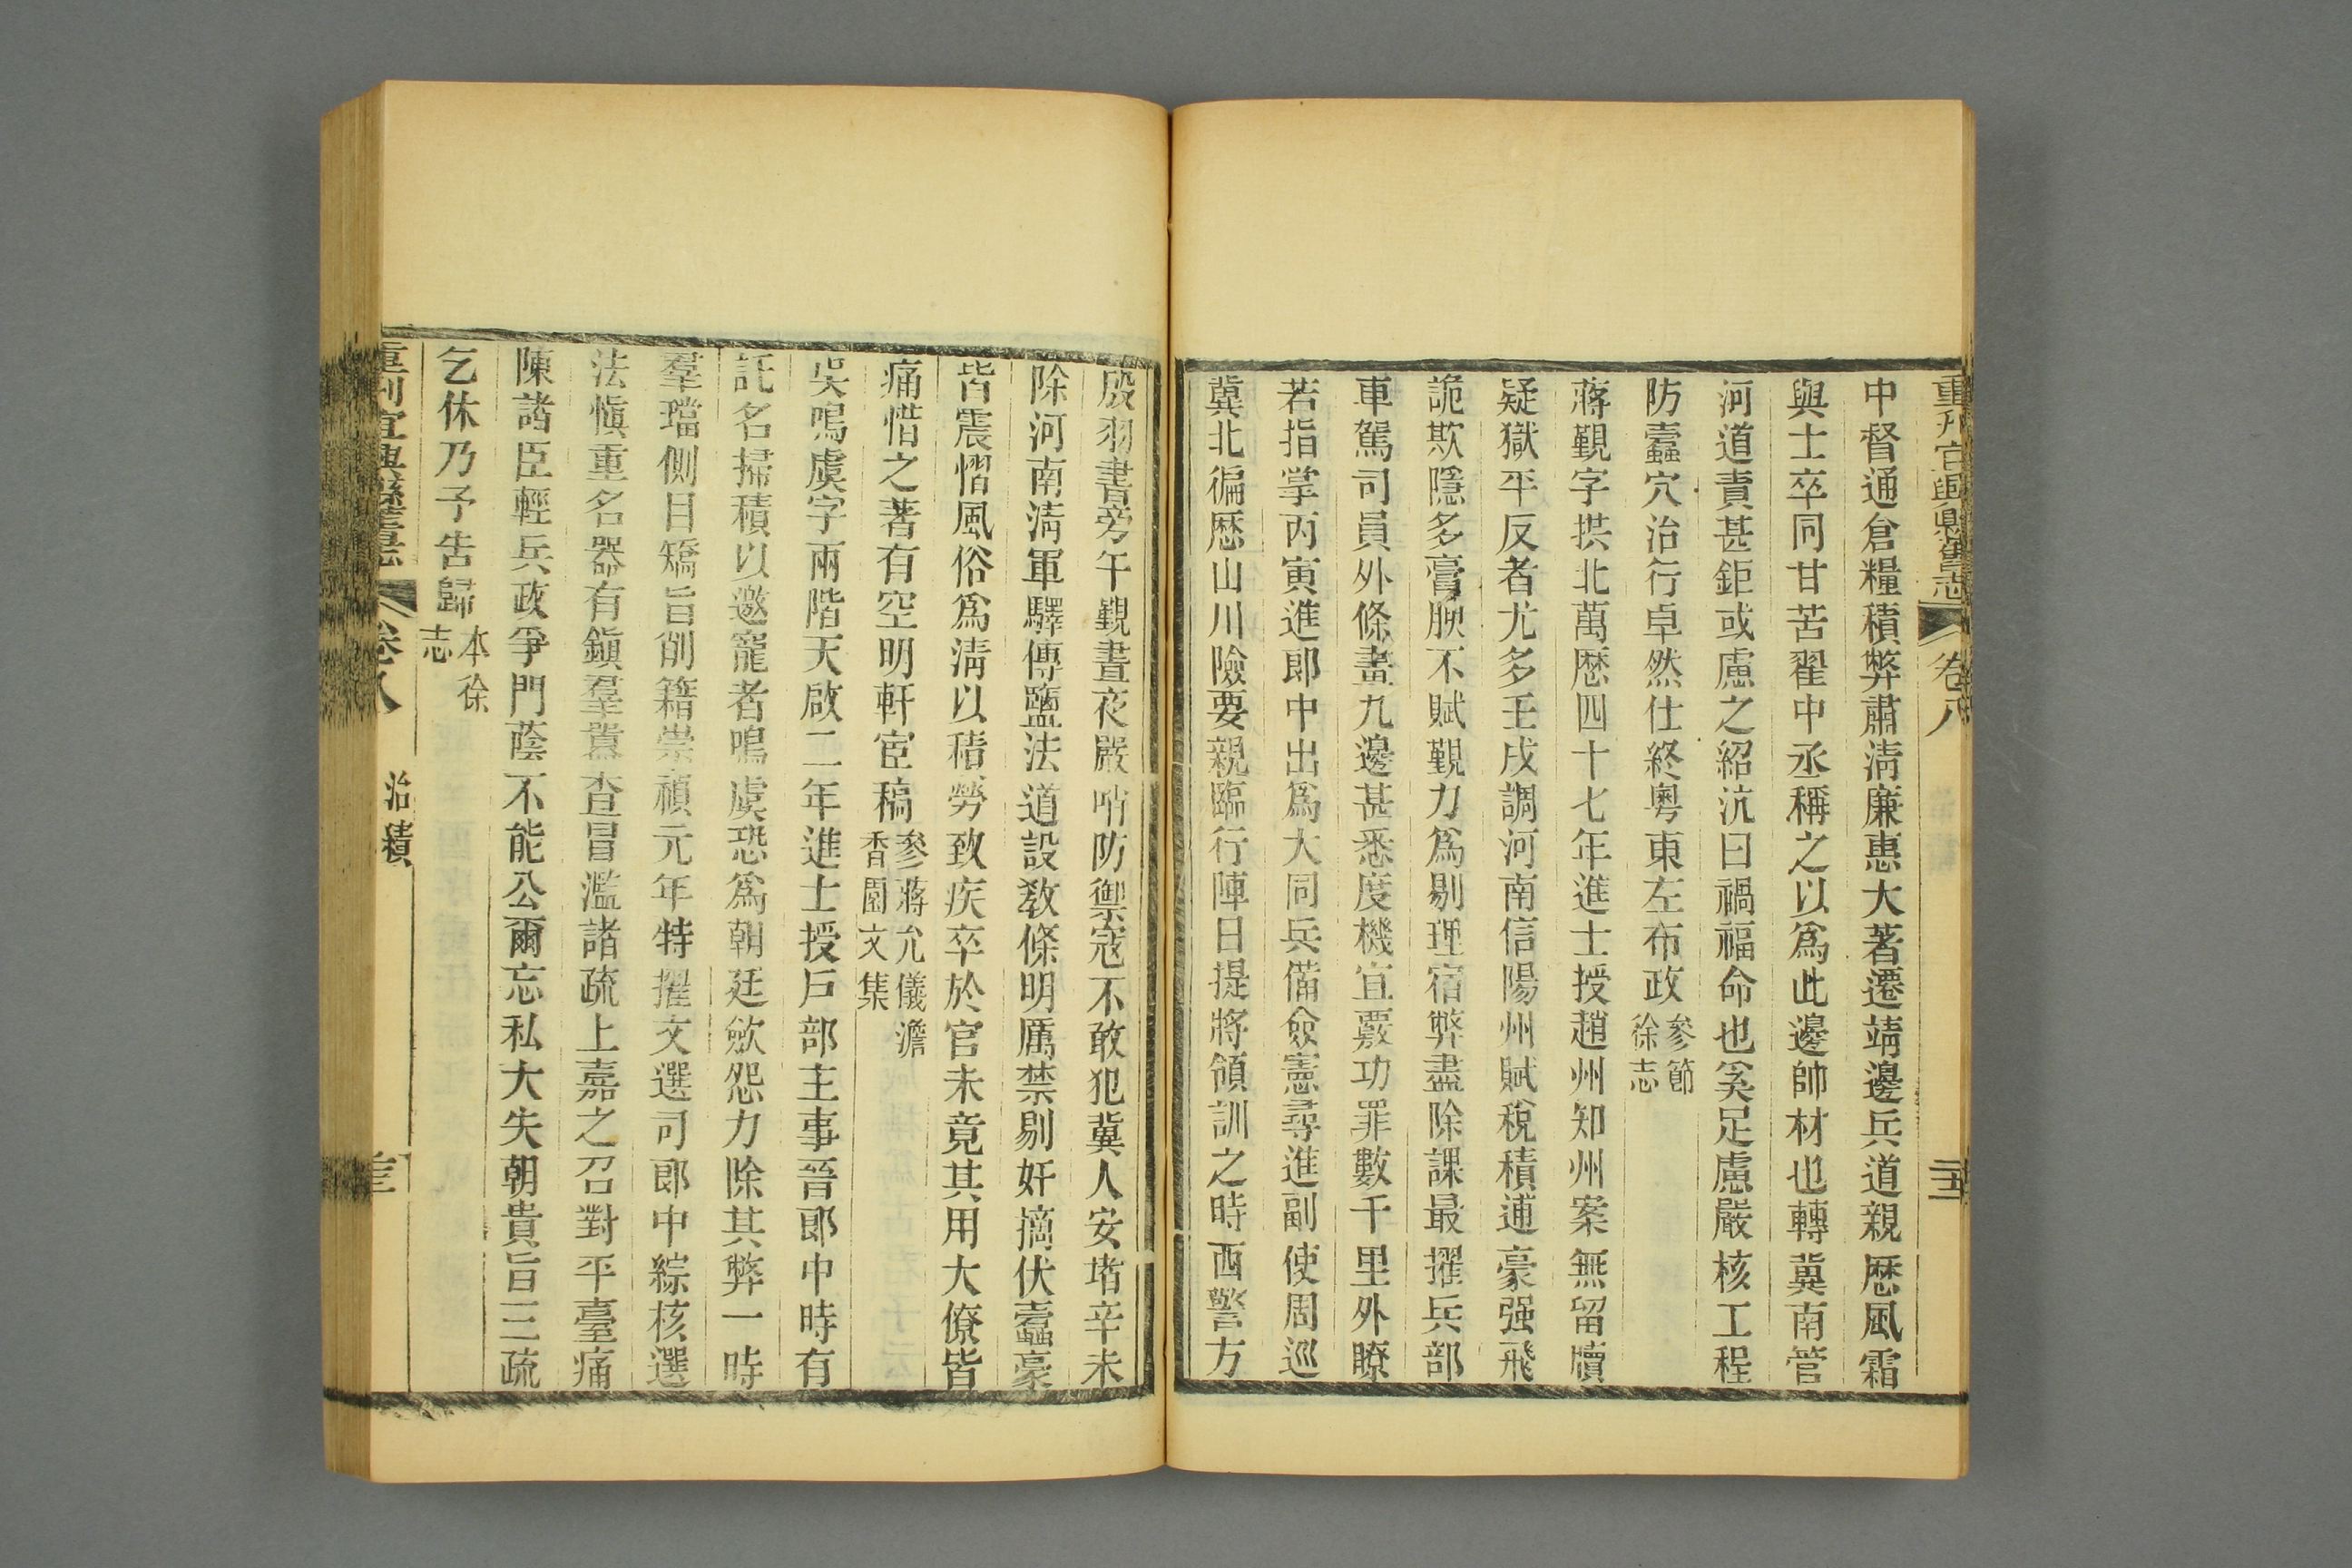 重刊宜興縣舊志 卷八
中督通倉糧積弊肅淸廉惠大著遷靖邊兵道親歷風霜
與士卒同甘苦翟中丞稱之以爲此邊帥材也轉冀南管
河道責甚鉅或慮之紹沆曰禍福命也奚足慮嚴核工程
防蠧穴治行卓然仕終粵東左布政參節徐志
蔣觐字拱北萬歷四十七年進士授趙州知州案無留牘
疑獄平反者尤多壬戌調河南信陽州賦稅積逋豪强飛
詭欺隱多膏腴不賦觐力爲剔理宿弊盡除課最擢兵部
車駕司員外條畫九邊甚悉度機宜覈功罪數千里外瞭
若指掌丙寅進郎中出爲大同兵備僉憲尋進副使周巡
冀北徧歷山川險要親臨行陣日提將領訓之時西警方
殷羽書旁午觐晝夜嚴哨防禦寇不敢犯冀人安堵辛未
除河南淸軍驛傳鹽法道設敎條明厲禁剔奸摘伏蠧豪
皆震慴風俗爲淸以積勞致疾卒於官未竟其用大僚皆
痛惜之著有空明軒宦稿參蔣允儀澹香園文集
吳鳴虞字兩階天啟二年進士授戶部主事晉郎中時有
託名掃積以邀寵者鳴虞恐爲朝廷斂怨力除其弊一時
羣璫側目矯旨削籍崇禎元年特擢文選司郎中綜核選
法愼重名器有鎭羣囂查冒濫諸疏上嘉之召對平臺痛
陳諸臣輕兵政爭門蔭不能公爾忘私大失朝貴旨三疏
乞休乃予告歸本徐志
重刊宜興縣舊志 卷八 治績